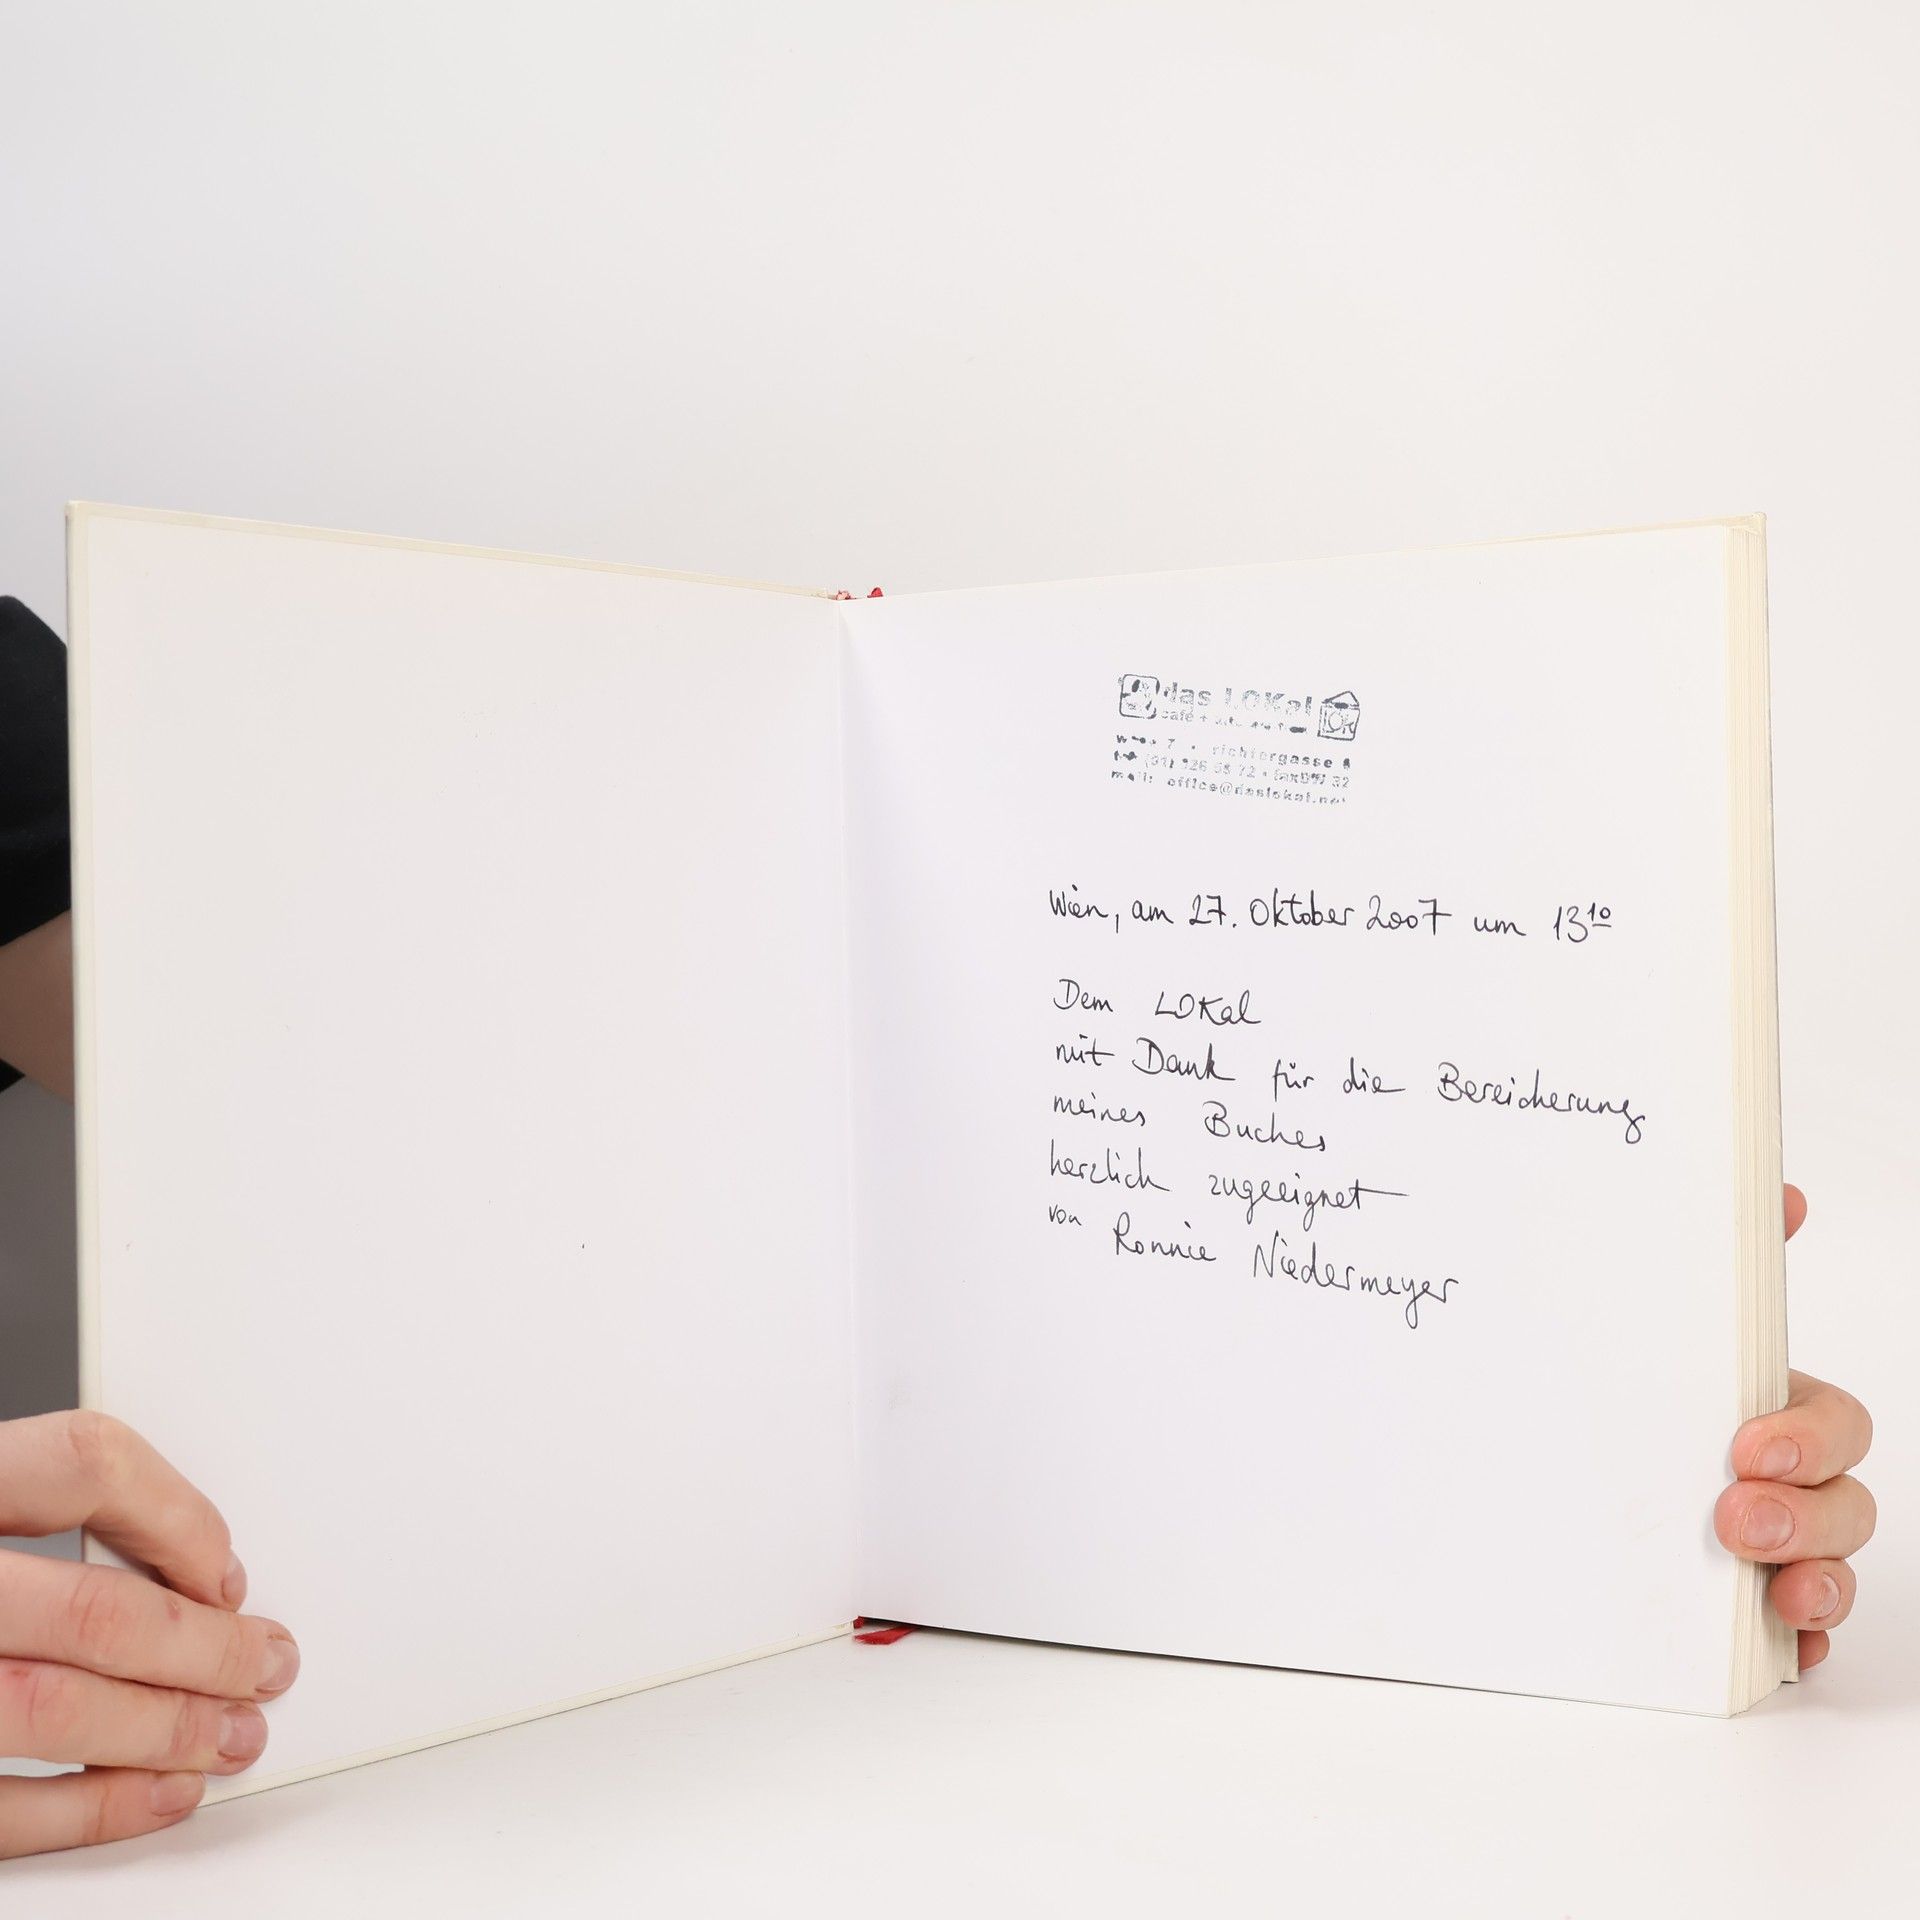 das LOKal
LOK
café +
7 . richtergasse 6
office@daslokal.net
Wien, am 27. Oktober 2007 um 13¹⁰
Dem LOKal
mit Dank für die Bereicherung
meines Buches
herzlich zugeeignet
von Ronnie Niedermeyer